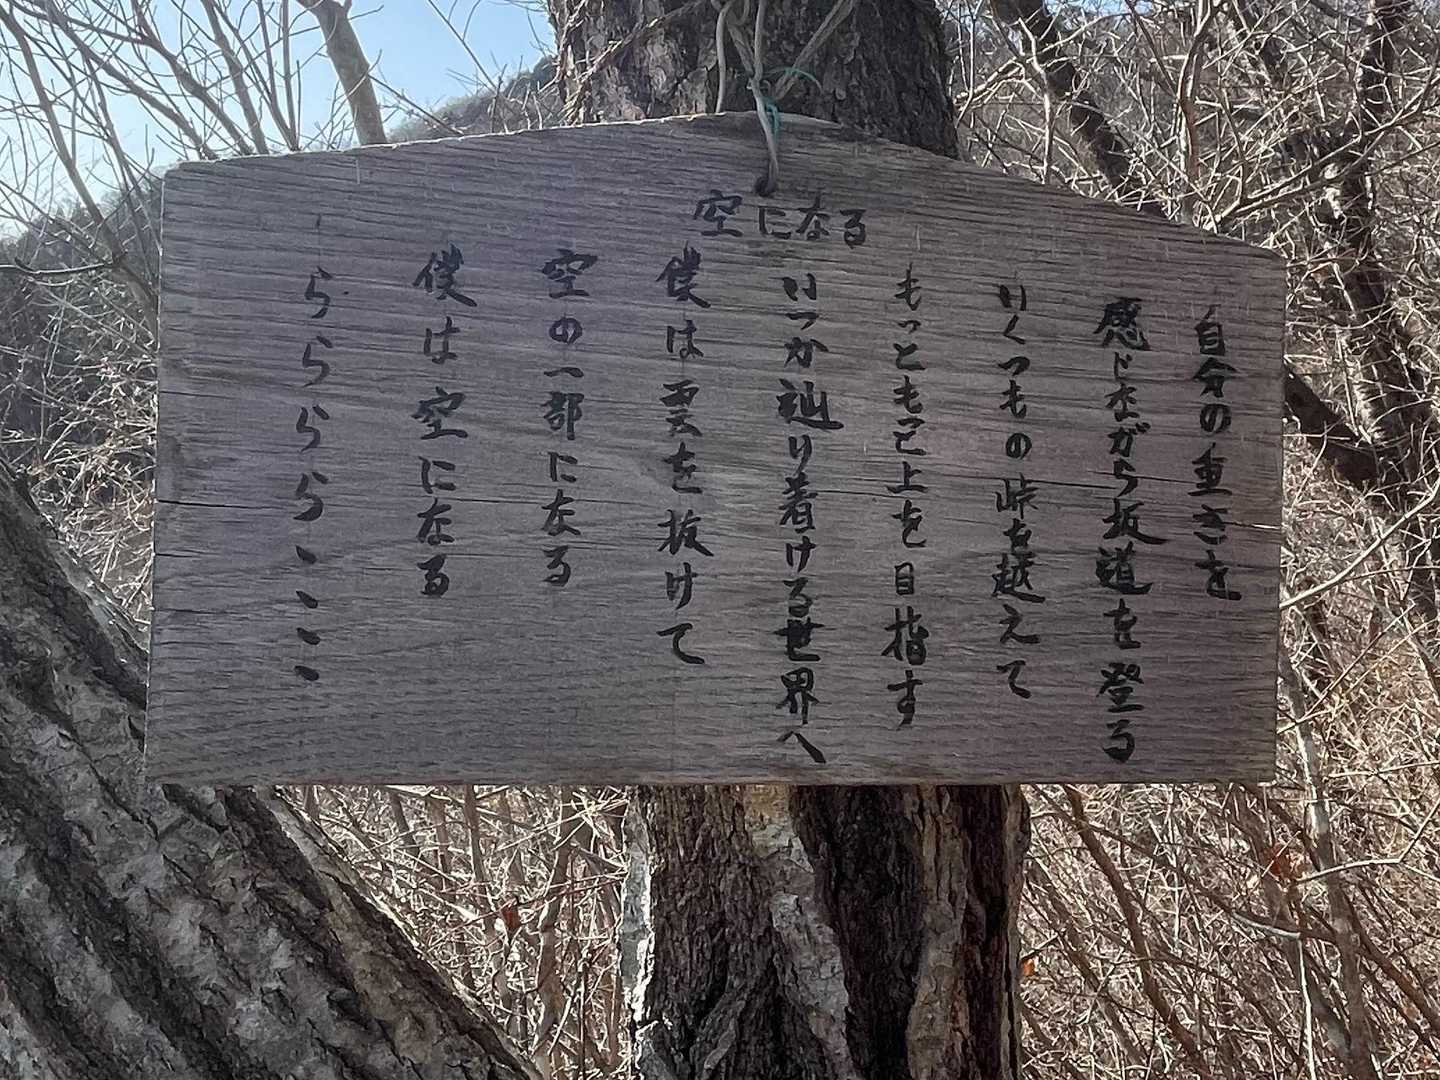 空になる
自分の重さを
感じながら坂道を登る
いくつもの峠を越えて
もっともっと上を目指す
いつか辿り着ける世界へ
僕は雲を抜けて
空の一部になる
僕は空になる
らららら、、、、